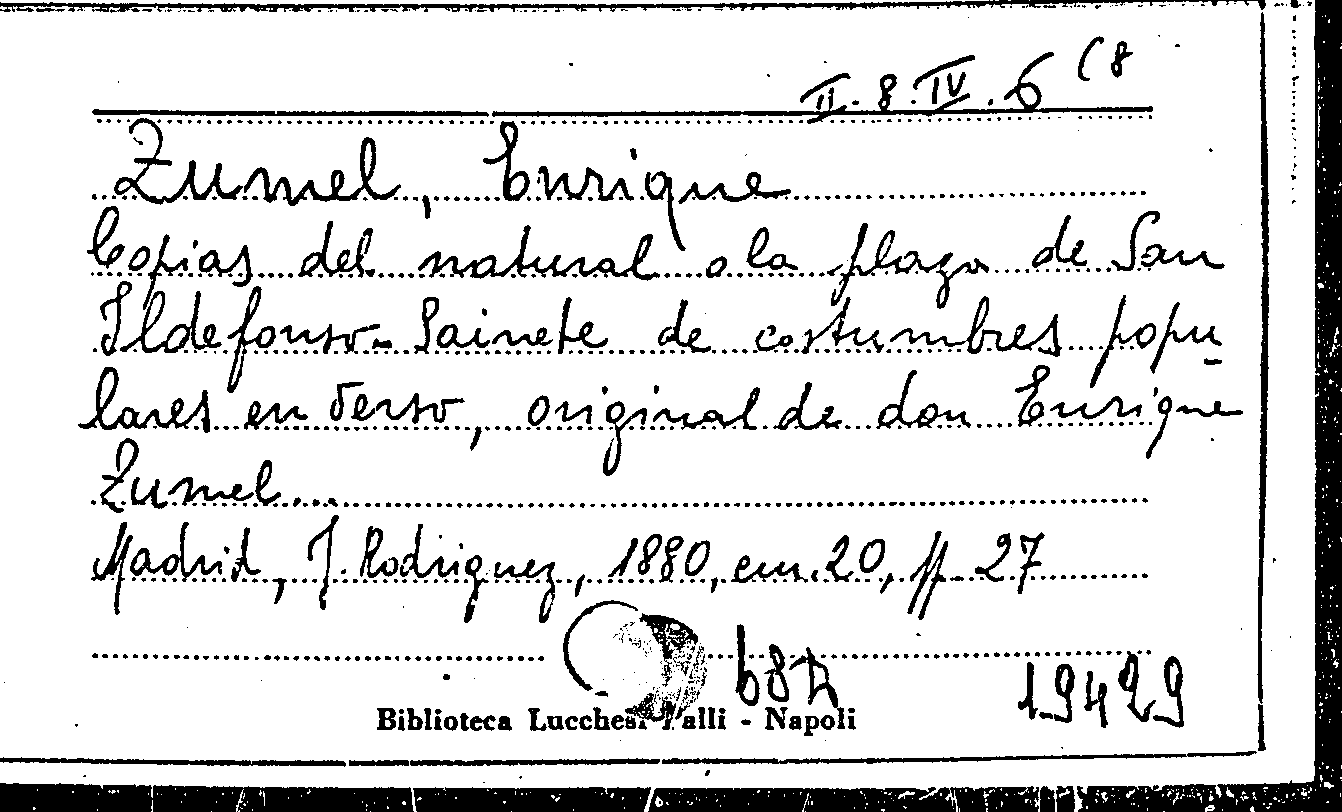 II. 8. IV. 6 (8
Zumel, Enrique
Copias del natural o la plaza de San
Ildefonso - Sainete de costumbres popu-
lares en verso, original de don Enrique
Zumel...
Madrid, J. Rodriguez, 1880, cm. 20, pp. 27
19429
Biblioteca Lucchesi Palli - Napoli